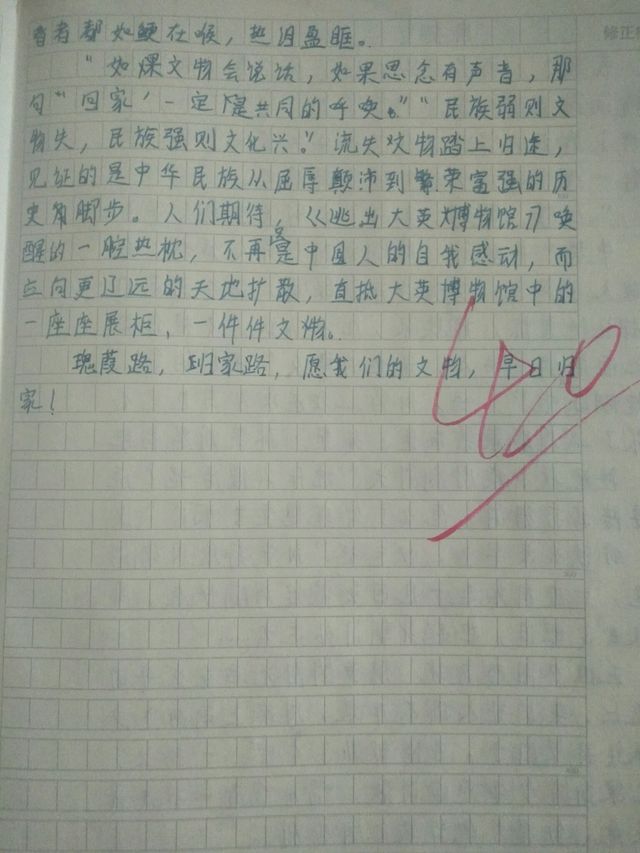 着者都如鲠在喉，热泪盈眶。
"如果文物会说话，如果思念有声音，那
句"回家'一定是共同的呼唤。""民族弱则文
物失，民族强则文化兴。"流失文物踏上归途，
见证的是中华民族从屈辱颠沛到繁荣富强的历
史有脚步。人们期待，《《逃出大英博物馆》》唤
醒的一腔热枕，不再是中国人的自我感动，而
应向更辽远的天地扩散，直抵大英博物馆中的
一座座展柜，一件件文物。
瑰葭路，归家路，愿我们的文物，早日归
家！
40
修正